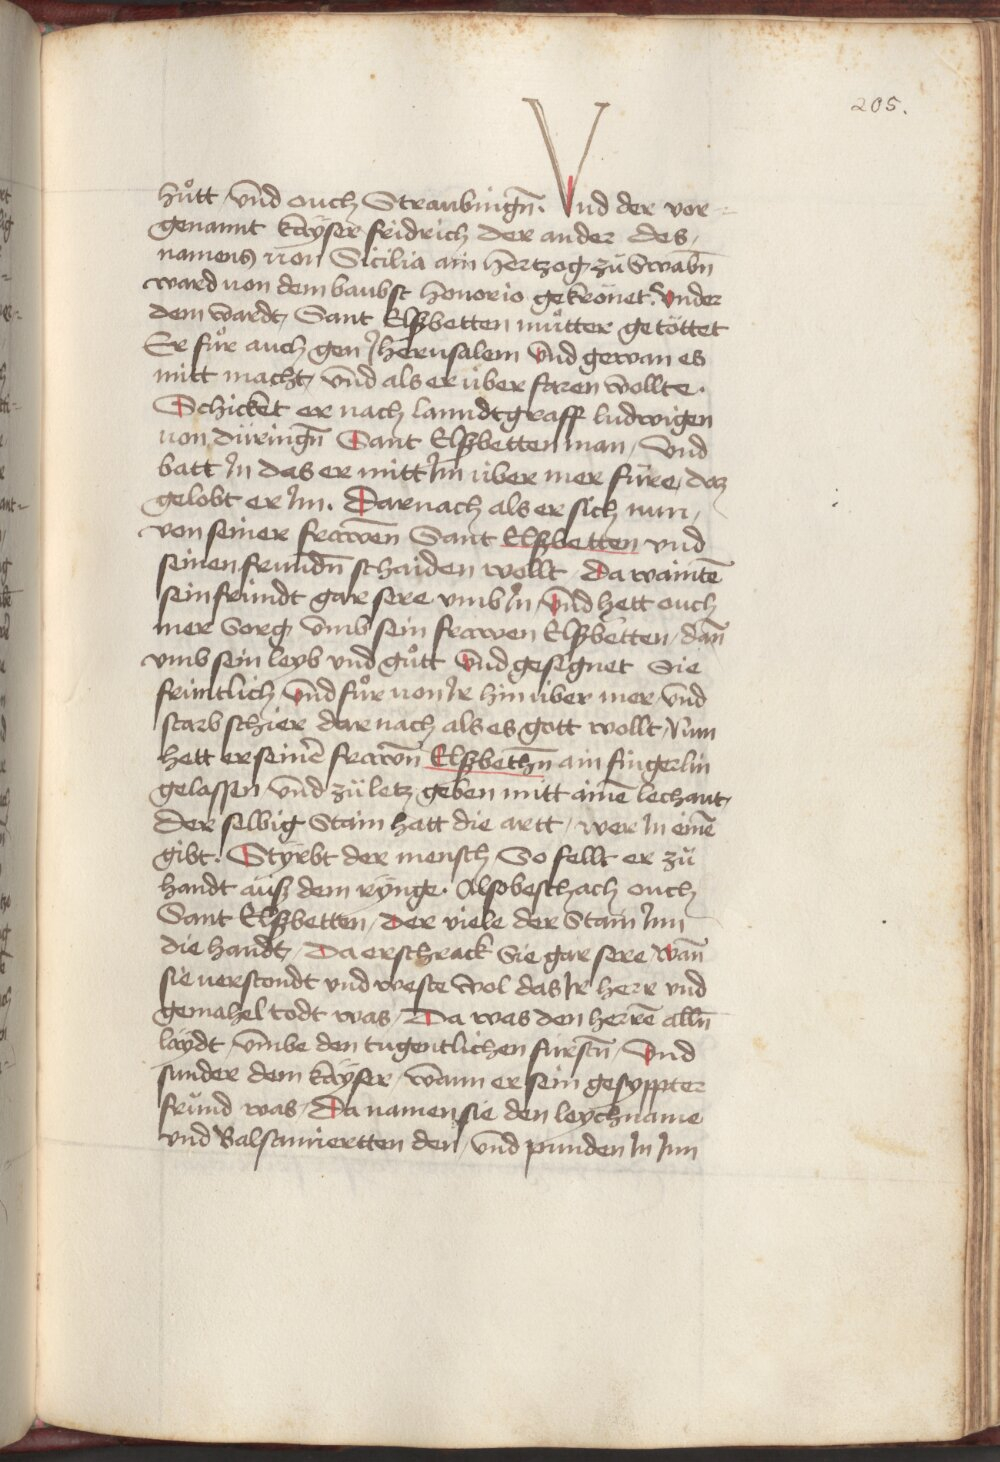 205.
hůtt / vnd ouch Straubingn̄. Vnd der vor-
genannt kaÿser fridrich der ander des /
namens von Sicilia ain hertzog zů Swabn̄
ward von dem baubst honorio gekrönet. Vnder
dem wardt / Sant Elßbetten můtter getöttet
Er fůr auch gen Jherusalem vnd gewan es
mitt macht / vnd als er über faren wollte.
Schicket er nach lanndtgraff ludwigen
von düringn̄ Sant Elßbetten man / Vnd
batt Jn das er mitt Jm über mer füre / daz
gelobt er Jm. Darnach als er sich nun /
von seiner frawen̄ Sant Elßbetten vnd
seinen freundn̄ schaiden wollt / Da waintē
sein fründt gar sere vmb Jn / Vnd hett ouch
mer Sorg vmb sein frawen Elßbetten / dan̄
vmb sein leyb vnd gůtt Vnd gesegnet Sie
früntlich / Vnd fůr von Jr hin über mer / vnd
starb schier dar nach als es gott wollt / Nun
hett er seinē frawn̄ Elßbethn̄ ain fingerlin
gelassen / vnd zů letz geben mitt ainē lechant /
Der selbig Stain hatt die artt / wer Jn einē
gibt. Styrbt der mensch / So fellt er zů
handt auß dem rÿnge. Also beschach ouch
Sant Elßbetten / Der viele der Stain Jnn
die handt / Da erschrack Sie gar sere / wan̄
sie verstondt vnd weste wol das Jr herr vnd
gemahel todt was / Da was den herrē alln̄
laydt / vmbe den tugentlichen fürstn̄ / Vnd
sunder dem kaÿser / wann er sein gesyppter
fründ was / Da namen sie den leychname
vnd Balsamiertten den / vnd punden Jn Jnn